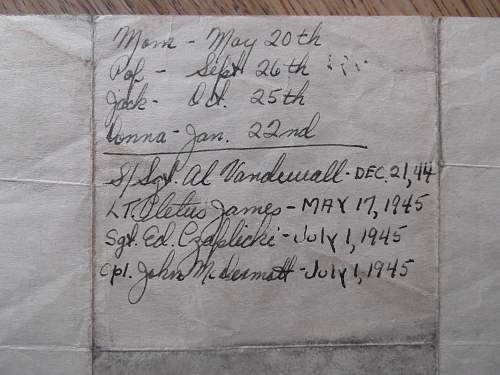 Mom - May 20th
Pop - Sept 26th
Jack - Oct. 25th
Donna - Jan. 22nd
S/Sgt. Al Vandewall - DEC. 21, 44
LT. Cletus James - MAY 17, 1945
Sgt. Ed. Czaplicki - July 1, 1945
Cpl. John McDermott - July 1, 1945